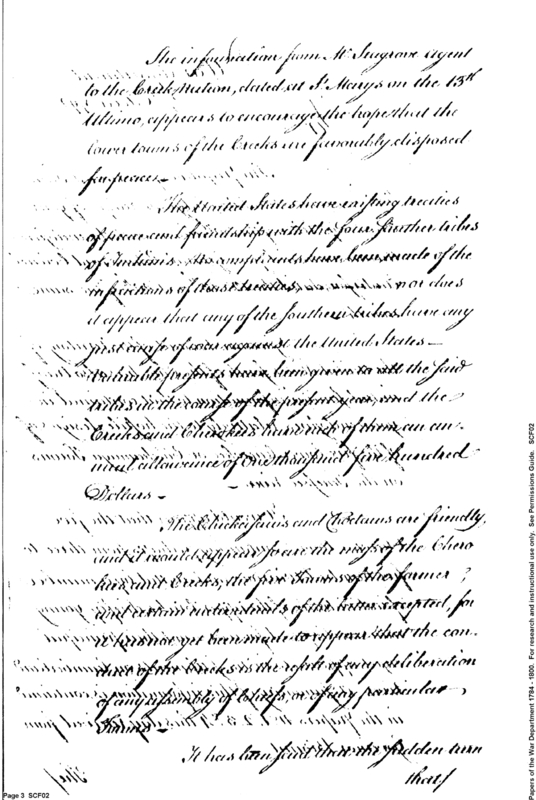 The information from Mr Seagrove agent
to the Creek Nation, dated at St Marys on the 13th
Ultimo, appears to encourage the hope that the
lower towns of the Creeks are favorably disposed
for peace—
The United States have existing treaties
of peace and friendship with the four Southern tribes
of Indians. No complaints have been made of the
infractions of those treaties, nor does
it appear that any of the Southern tribes have any
just cause of war against the United States—
Valuable presents have been given to all the said
tribes in the course of the present year, and the
Creeks and Cherokees have each of them an an-
nual allowance of One thousand five hundred
Dollars—
The Chickasaws and Choctaws are friendly,
and it would appear so are the mass of the Chero
kees and Creeks, the five Towns of the former,
and certain individuals of the latter excepted, for
it has not yet been made to appear that the con-
duct of the Creeks is the result of any deliberation
of any assembly of Chiefs, or of any particular
Towns—
It has been said that the sudden turn
that/
Page 3 SCF02
Papers of the War Department 1784 - 1800. For research and instructional use only. See Permissions Guide. SCF02